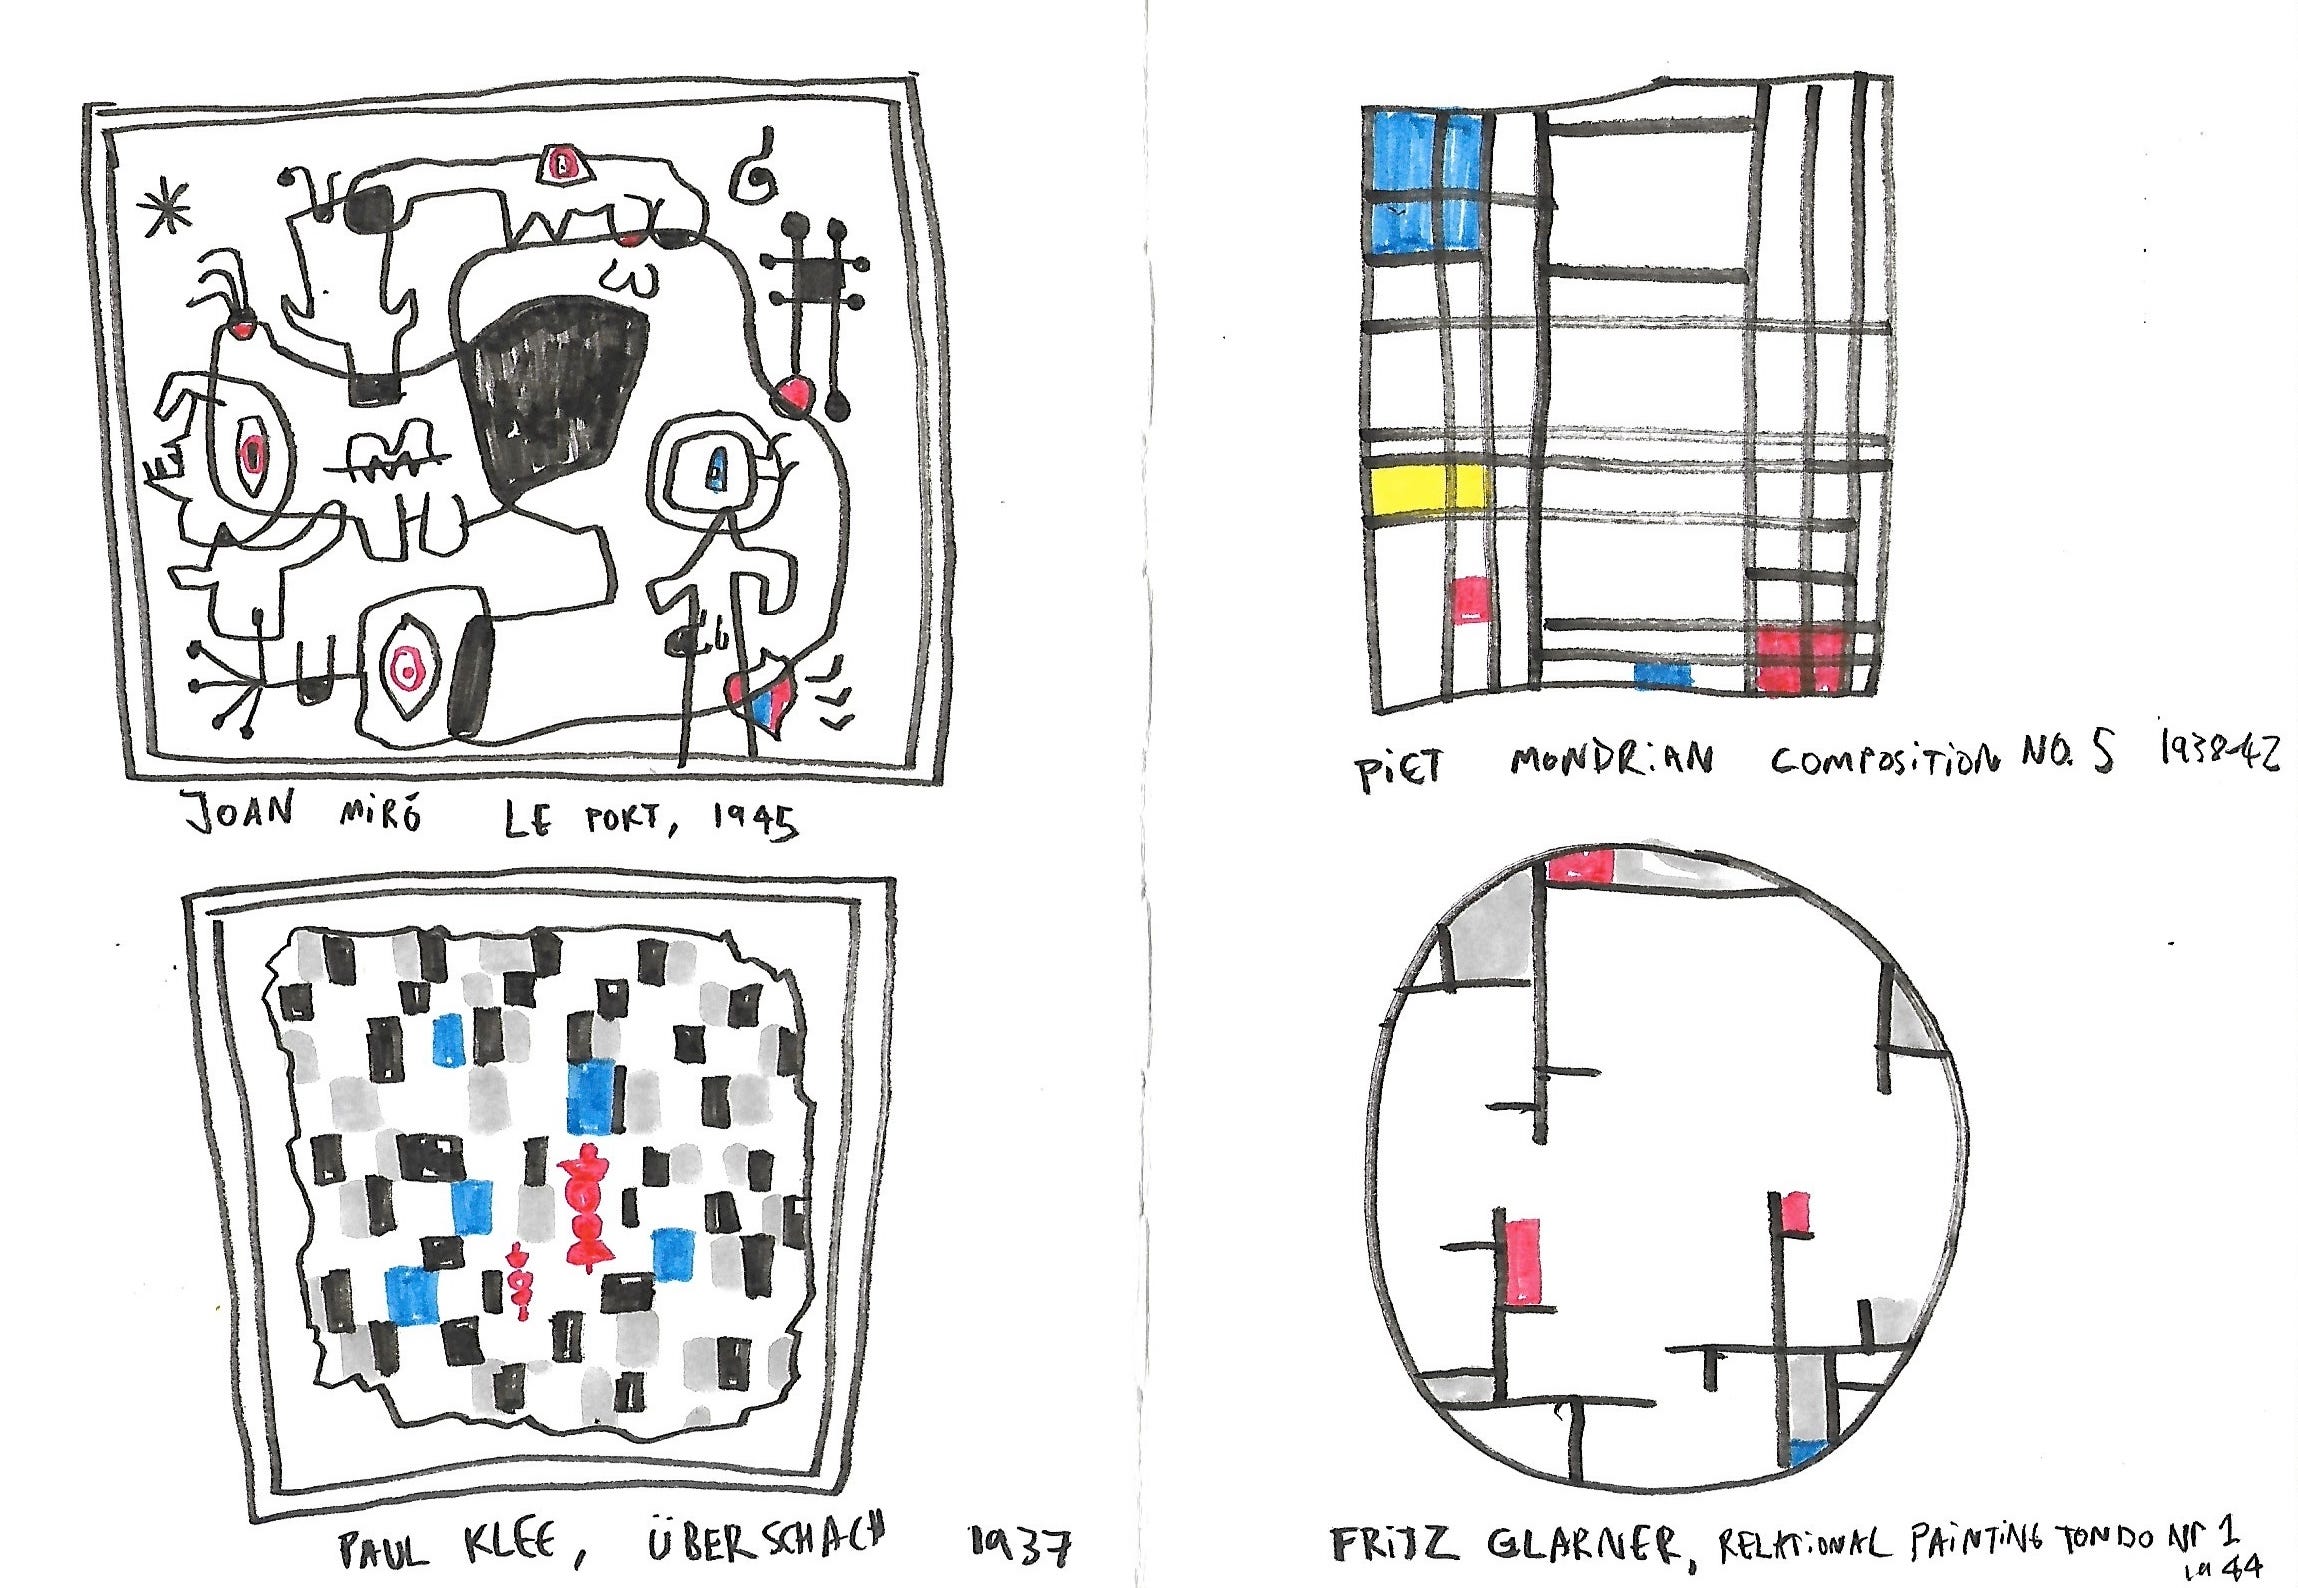 JOAN MIRÓ LE PORT, 1945
PAUL KLEE, ÜBERSCHACH 1937
PIET MONDRIAN COMPOSITION NO. 5 1938-42
FRITZ GLARNER, RELATIONAL PAINTING TONDO Nr 1
1944